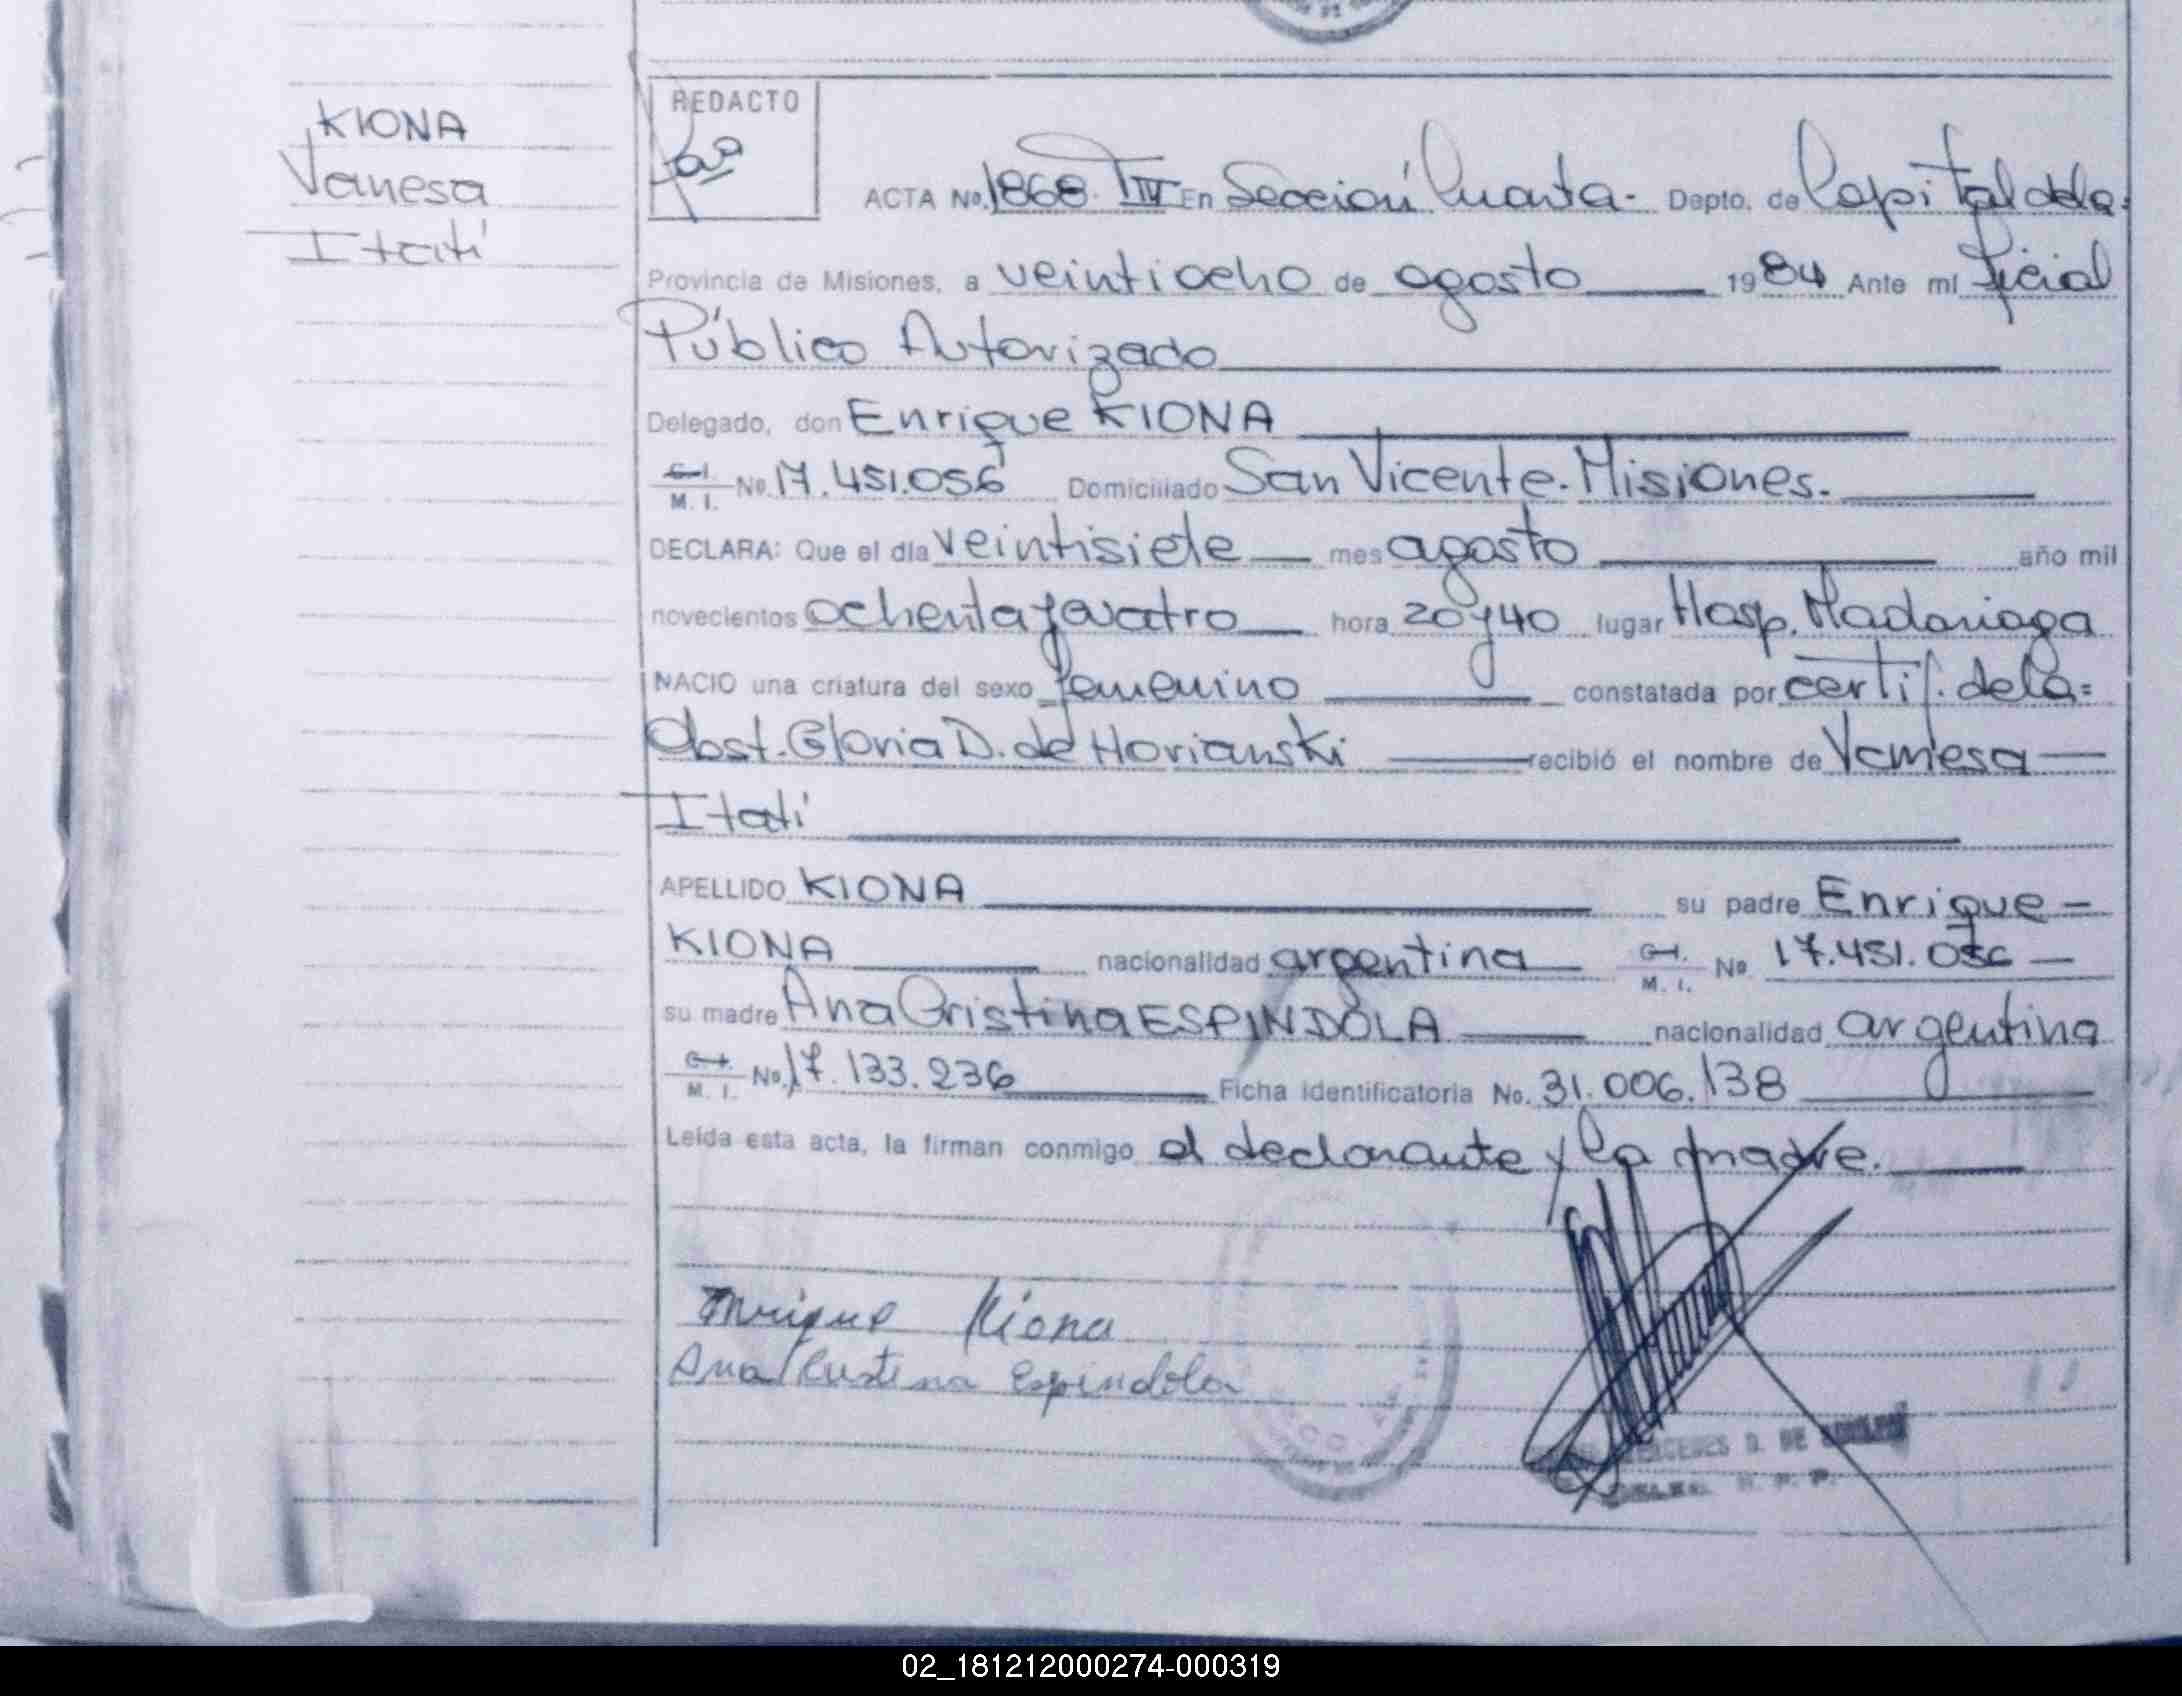 KIONA
Vanesa
Itatí
REDACTO
ACTA No. 1868. TIV En Sección Cuarta- Depto. de Capital de la=
Provincia de Misiones, a veintiocho de agosto 1984 Ante mí Oficial
Público Autorizado
Delegado, don Enrique KIONA
C. I. M. I. No. 17.451.056 Domiciliado San Vicente. Misiones.
DECLARA: Que el día veintisiete mes agosto año mil
novecientos ochenta y cuatro hora 20 y 40 lugar Hosp. Madariaga
NACIO una criatura del sexo femenino constatada por certif. de la=
Obst. Gloria D. de Horianski recibió el nombre de Vanesa
Itatí
APELLIDO KIONA su padre Enrique
KIONA nacionalidad argentina C. I. M. I. No 17.451.056
su madre Ana Cristina ESPINDOLA nacionalidad argentina
C. I. M. I. No. 17.133.236 Ficha identificatoria No. 31.006.138
Leída esta acta, la firman conmigo el declarante y la madre.
Enrique Kiona
Ana Cristina Espindola
D. DE
02_181212000274-000319